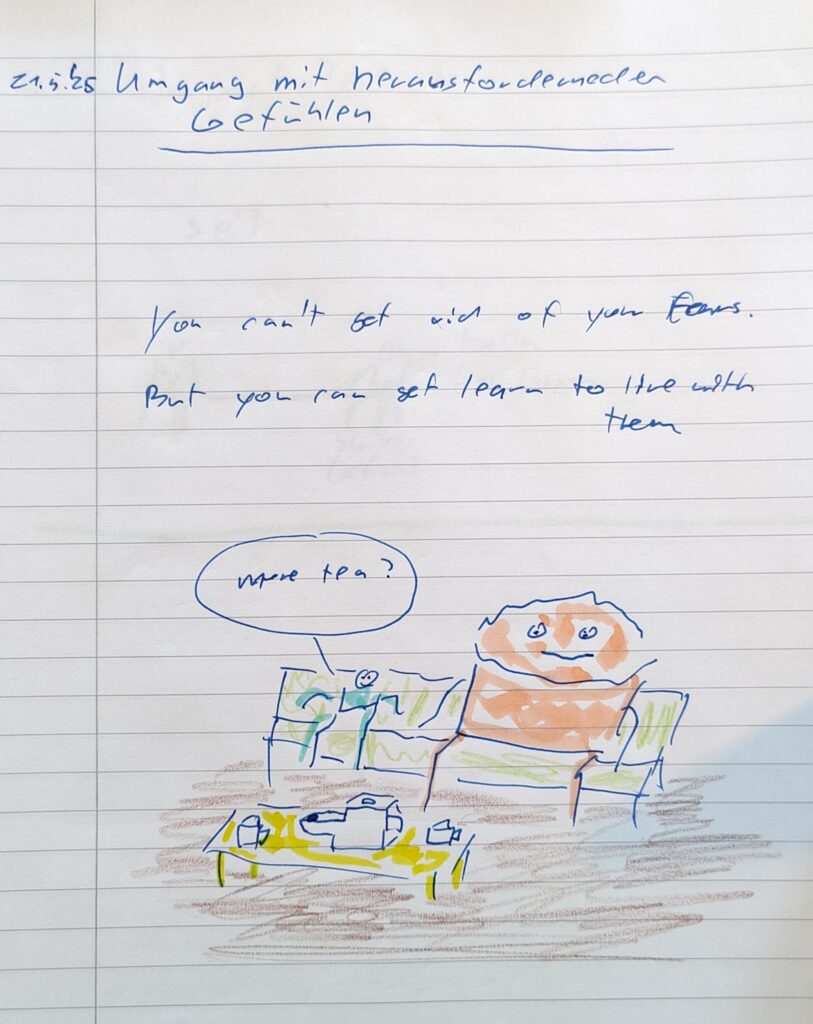 21.5.25 Umgang mit herausfordernden
Gefühlen
You can't get rid of your Fears.
But you can get learn to live with
them
more tea?